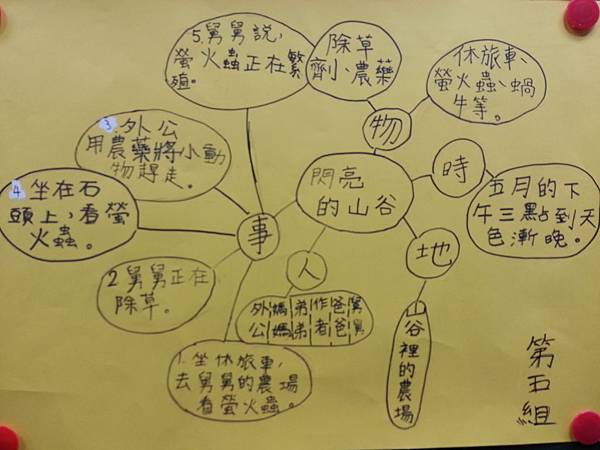 閃亮
的山谷
物
除草
劑、農藥
休旅車、
螢火蟲、蝸
牛等。
時
五月的下
午三點到天
色漸晚。
地
山谷裡的農場
人
外公
媽媽
弟弟
作者
爸爸
舅舅
事
1.坐休旅車,
去舅舅的農場
看螢火蟲。
2舅舅正在
除草。
3.外公
用農藥將小動
物趕走。
4坐在石
頭上,看螢
火蟲。
5.舅舅說,
螢火蟲正在繁
殖。
第五組